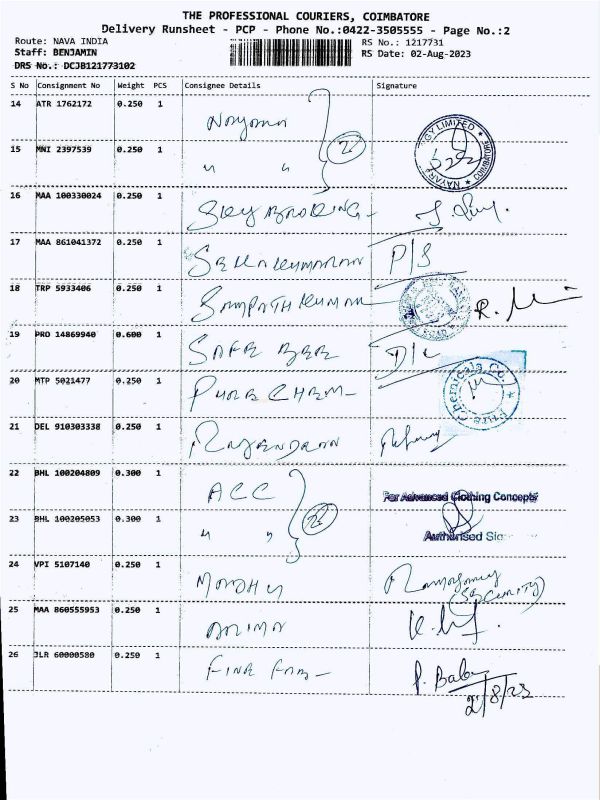 THE PROFESSIONAL COURIERS, COIMBATORE
Delivery Runsheet - PCP - Phone No.:0422-3505555 - Page No.:2
Route: NAVA INDIA
RS No.: 1217731
Staff: BENJAMIN
RS Date: 02-Aug-2023
DRS No.: DCJB121773102
S No Consignment No Weight PCS Consignee Details Signature
14 ATR 1762172 0.250 1
GY LIMITED
NAYAR
COIMBATORE
15 MNI 2397539 0.250 1 " "
16 MAA 100330024 0.250 1
17 MAA 861041372 0.250 1 SELVAKUMARAN P/S
18 TRP 5933406 0.250 1 SAMPATHKUMAR
19 PRO 14869940 0.600 1 SAFE BEE D/L
20 MTP 5021477 0.250 1 PURE CHEM-
Pure Chemicals Co.
21 DEL 910303338 0.250 1 RAJENDRAN
22 BHL 100204809 0.300 1 ACC
For Advanced Clothing Concepts
23 BHL 100205053 0.300 1 " "
Authorised Sig
24 VPI 5107140 0.250 1 MADHU
(SECURITY)
25 MAA 860555953 0.250 1
26 JLR 60000580 0.250 1 FINE FAB- P. Babu
2/8/23